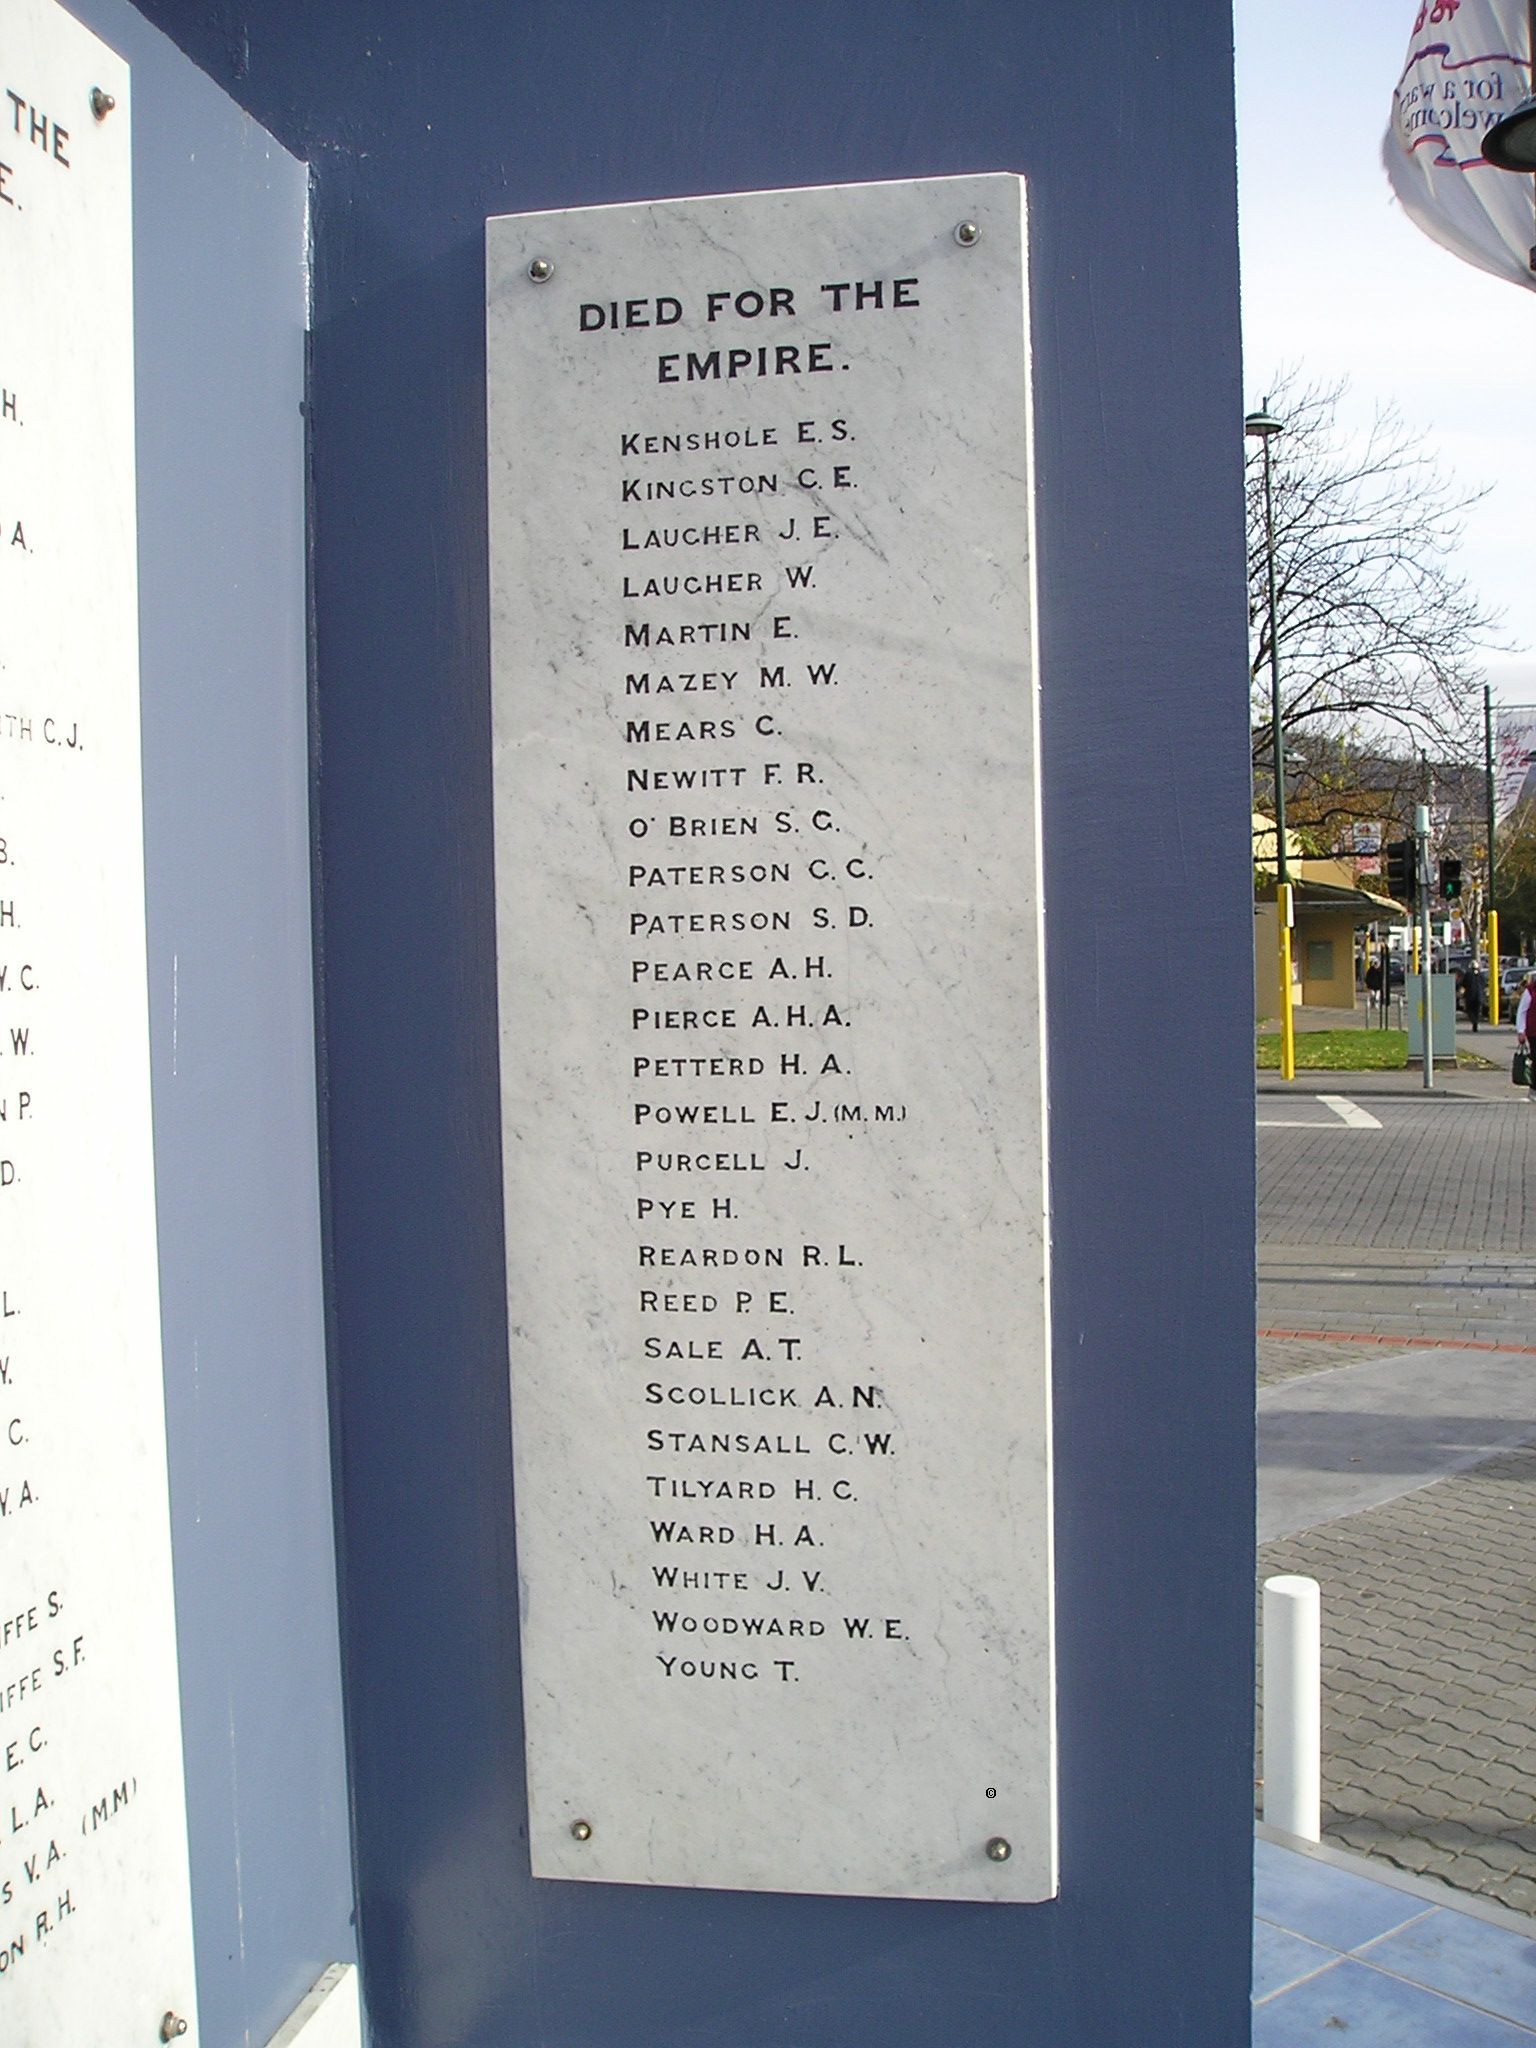 THE
E.
H.
A.
ITH C.J.
B.
H.
W. C.
. W.
N P.
D.
L.
C.
W. A.
IFFE S.
IFFE S.F.
E. C.
L. A.
S V. A. (M.M)
ON R. H.
DIED FOR THE
EMPIRE.
KENSHOLE E. S.
KINGSTON C. E.
LAUGHER J. E.
LAUGHER W.
MARTIN E.
MAZEY M. W.
MEARS C.
NEWITT F. R.
O'BRIEN S. G.
PATERSON C. C.
PATERSON S. D.
PEARCE A. H.
PIERCE A. H. A.
PETTERD H. A.
POWELL E. J. (M. M.)
PURCELL J.
PYE H.
REARDON R. L.
REED P. E.
SALE A. T.
SCOLLICK A. N.
STANSALL C. W.
TILYARD H. C.
WARD H. A.
WHITE J. V.
WOODWARD W. E.
YOUNG T.
©
for a
welcome